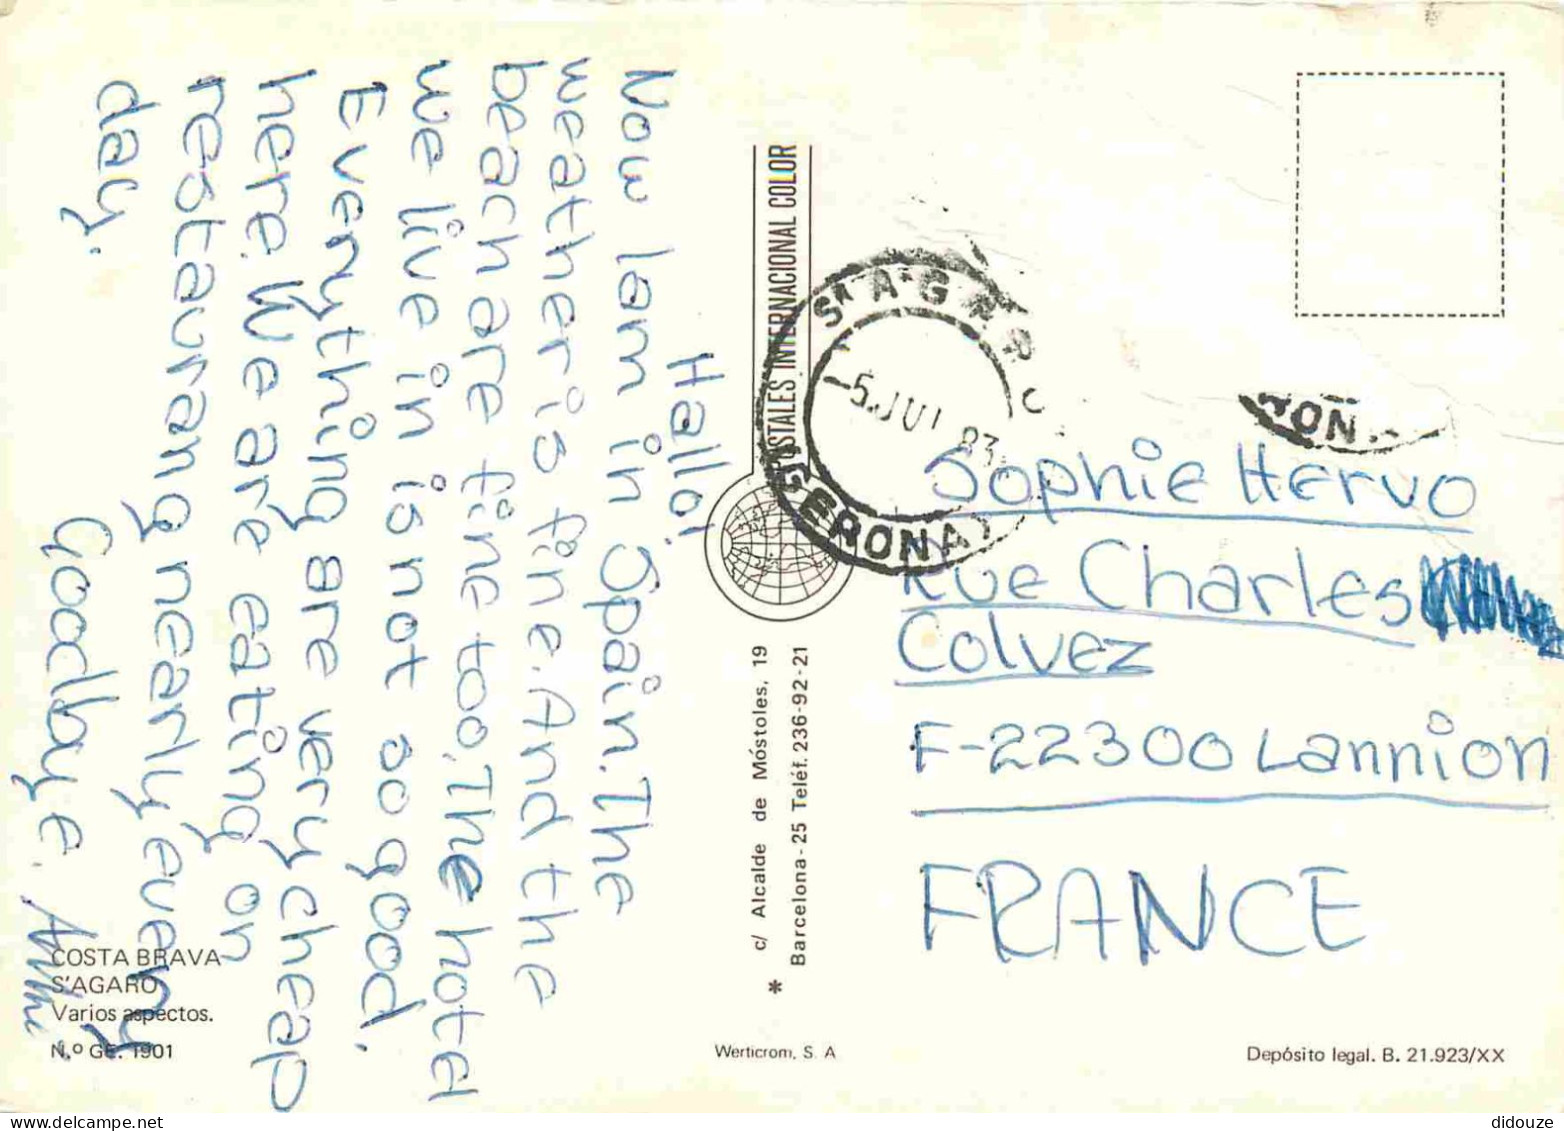 Hallo!
Now I am in Spain. The
weather is fine. And the
beach are fine too, The hotel
we live in is not so good.
Everything are very cheap
here. We are eating on
restaurang nearly every
day.
Goodbye.
COSTA BRAVA
S'AGARO
Varios aspectos.
N.º GE. 1901
POSTALES INTERNACIONAL COLOR
* c/ Alcalde de Móstoles, 19
Barcelona-25 Teléf. 236-92-21
Werticrom, S. A
S'AGARO
5. JUL 83
GERONA
Sophie Hervo
Rue Charles
Colvez
F-22300 Lannion
FRANCE
Depósito legal. B. 21.923/XX
didouze